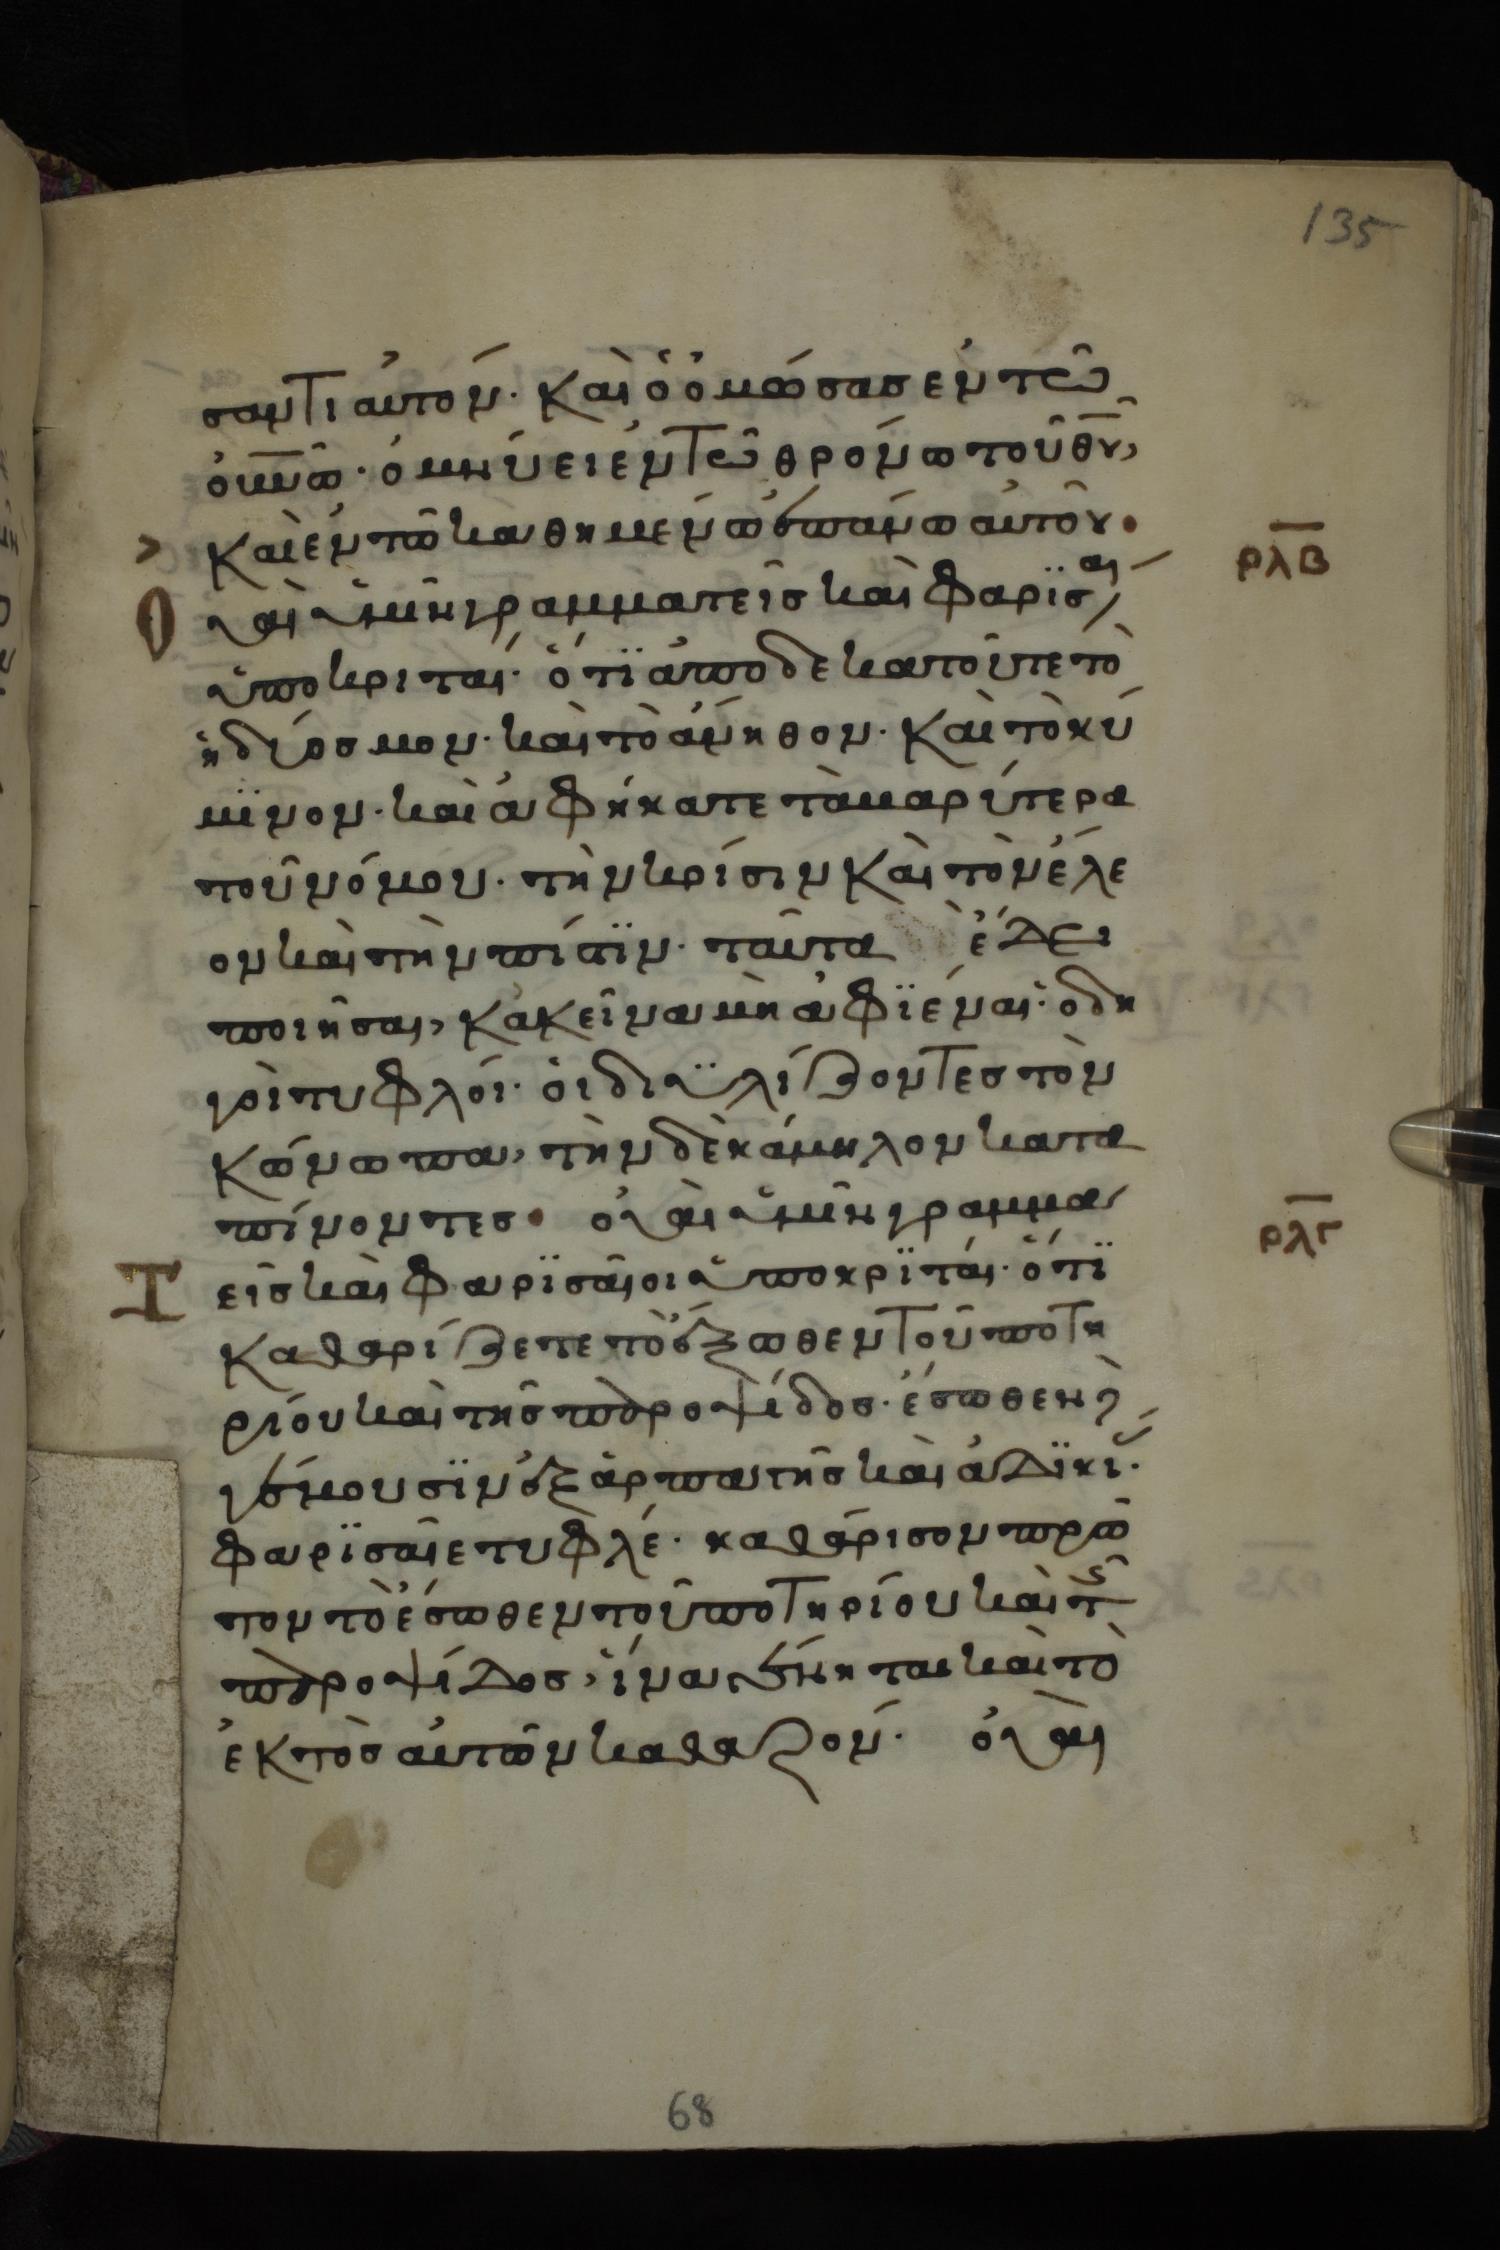 135
σαντι αὐτόν· καὶ ὁ ὀμόσας ἐν τῶ
οὐνῶ· ὀμνύει ἐν τῶ θρόνω τοῦ θῦ,
καὶ ἐν τῶ καθημένω ἐπάνω αὐτοῦ·
ρλβ
Οὐαὶ ὑμῖν γραμματεῖς καὶ φαρισαῖ
ὑποκριταί· ὅτι ἀποδεκατοῦτε τὸ
ἡδύοσμον· καὶ τὸ ἄνηθον· καὶ τὸ κύ
μινον· καὶ ἀφήκατε τὰ βαρύτερα
τοῦ νόμου· τὴν κρίσιν καὶ τὸν ἔλε
ον καὶ τὴν πίστιν· ταῦτα ἔδει
ποιῆσαι, κἀκεῖνα μὴ ἀφιέναι· ὁδη
γοὶ τυφλοί· οἱ διϋλίζοντες τὸν
κώνωπα, τὴν δὲ κάμηλον κατα
πίνοντες· οὐαὶ ὑμῖν γραμμα
ρλγ
Τεῖς καὶ φαρισαῖοι ὑποκριταί· ὅτι
καθαρίζετε τὸ ἔξωθεν τοῦ ποτη
ρίου καὶ τῆς παροψίδος· ἔσωθεν δὲ
γέμουσιν ἐξ ἁρπαγῆς καὶ ἀδικί·
φαρισαῖε τυφλέ· καθάρισον πρῶ
τον τὸ ἔσωθεν τοῦ ποτηρίου καὶ τῆς
παροψίδος, ἵνα γένηται καὶ τὸ
ἐκτὸς αὐτῶν καθαρόν· οὐαὶ
68